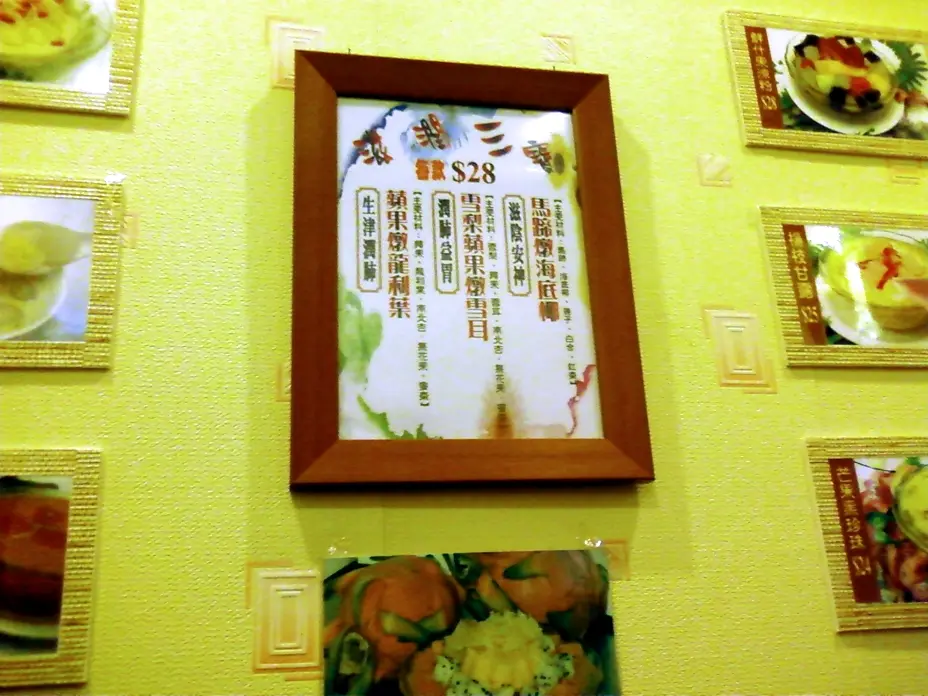 三寶
各款 $28
【主要材料：馬蹄、海底椰、蓮子、百合、紅棗】
馬蹄燉海底椰
滋陰安神
【主要材料：雪梨、蘋果、雪耳、南北杏、無花果、
雪梨蘋果燉雪耳
潤肺益胃
【主要材料：蘋果、龍利葉、南北杏、無花果、蜜棗】
蘋果燉龍利葉
生津潤肺
鮮什果涼粉
楊枝甘露 $25
芒果黑珍珠 $24